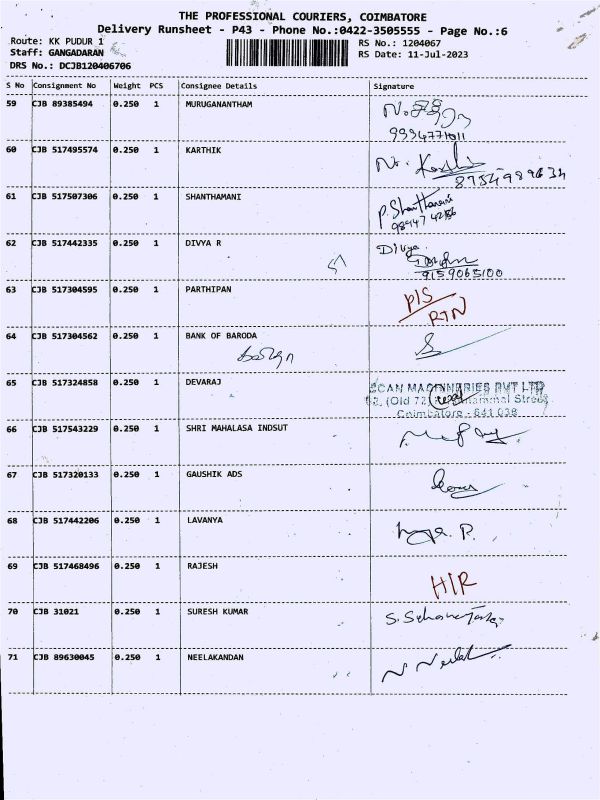 THE PROFESSIONAL COURIERS, COIMBATORE
Delivery Runsheet - P43 - Phone No.:0422-3505555 - Page No.:6
Route: KK PUDUR 1 RS No.: 1204067
Staff: GANGADARAN RS Date: 11-Jul-2023
DRS No.: DCJB120406706
S No Consignment No Weight PCS Consignee Details Signature
59 CJB 89385494 0.250 1 MURUGANANTHAM
9994771011
60 CJB 517495574 0.250 1 KARTHIK
61 CJB 517507306 0.250 1 SHANTHAMANI P. Shanthamani
62 CJB 517442335 0.250 1 DIVYA R Divya
9159065100
63 CJB 517304595 0.250 1 PARTHIPAN P/S
RTN
64 CJB 517304562 0.250 1 BANK OF BARODA
65 CJB 517324858 0.250 1 DEVARAJ SCAN MACHINERIES PVT LTD
(Old 72) Street
Coimbatore - 641 038
66 CJB 517543229 0.250 1 SHRI MAHALASA INDSUT
67 CJB 517320133 0.250 1 GAUSHIK ADS
68 CJB 517442206 0.250 1 LAVANYA
69 CJB 517468496 0.250 1 RAJESH H/R
70 CJB 31021 0.250 1 SURESH KUMAR
71 CJB 89630045 0.250 1 NEELAKANDAN